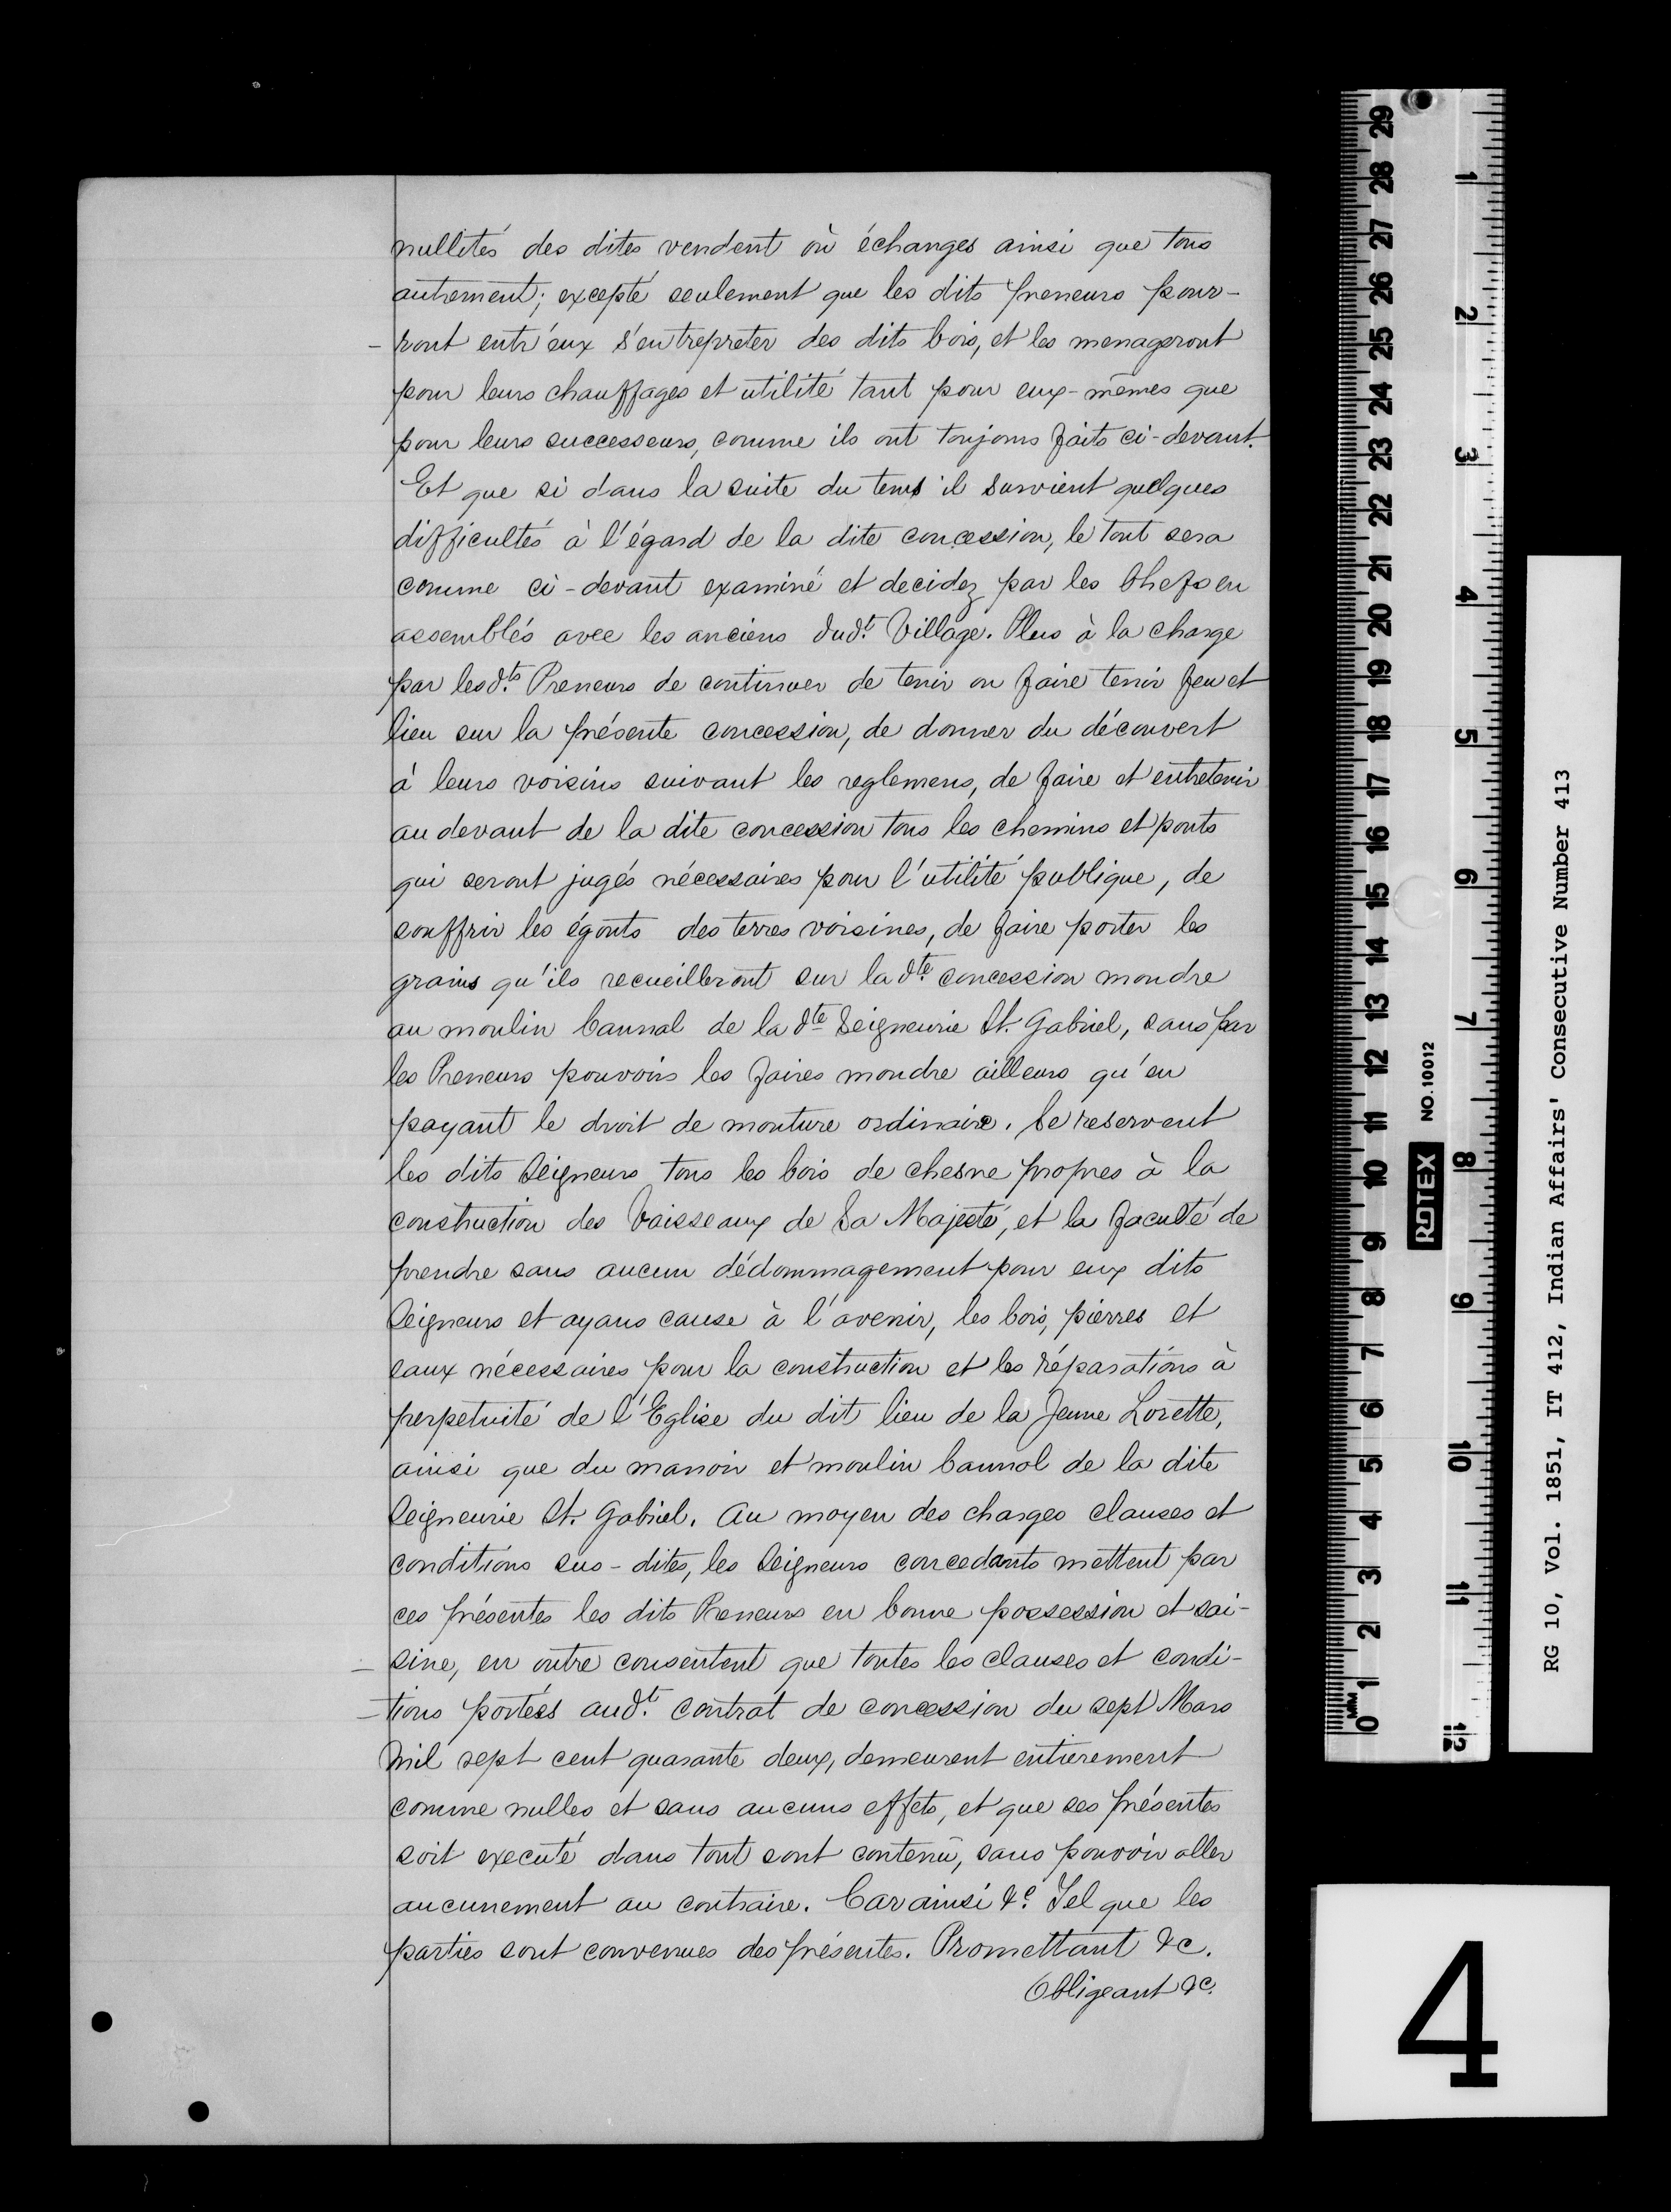 nullités des dites vendent où échanges ainsi que tous
autrement; excepté seulement que les dits preneurs pour-
-ront entr'eux s'entrepreter des dits bois, et les menageront
pour leurs chauffages et utilité tant pour eux-mêmes que
pour leurs successeurs, comme ils ont toujours faits ci-devant.
Et que si dans la suite du tems il survient quelques
difficultés à l'égard de la dite concession, le tout sera
comme ci-devant examiné et decidez par les Chefs en
assemblés avec les anciens dudt. Village. Plus à la charge
par lesdts. Preneurs de continuer de tenir ou faire tenir feu et
lieu sur la présente concession, de donner du découvert
à leurs voisins suivant les reglemens, de faire et entretenir
au devant de la dite concession tous les chemins et ponts
qui seront jugés nécessaires pour l'utilité publique, de
souffrir les égouts des terres voisines, de faire porter les
grains qu'ils recueilleront sur la dte. concession moudre
au moulin bannal de la dte Seigneurie St. Gabriel, sans par
les Preneurs pouvoirs les faires moudre ailleurs qu'en
payant le droit de mouture ordinaire. Se reservent
les dits Seigneurs tous les bois de chesne propres à la
construction des Vaisseaux de Sa Majesté, et la faculté de
prendre sans aucun dédommagement pour eux dits
Seigneurs et ayans cause à l'avenir, les bois, pierres et
eaux nécessaires pour la construction et les réparations à
perpetuité de l'Eglise du dit lieu de la Jeune Lorette,
ainsi que du manoir et moulin bannal de la dite
Seigneurie St. Gabriel. Au moyen des charges clauses et
conditions sus-dites, les Seigneurs concedants mettent par
ces présentes les dits Preneurs en bonne possession et sai-
-sine, en outre consentent que toutes les clauses et condi-
-tions portées audt. contrat de concession du sept Mars
Mil sept cent quarante deux, demeurent entierement
comme nulles et sans aucuns effets, et que ses présentes
soit executé dans tout sont contenû, sans pouvoir aller
aucunement au contraire. Car ainsi &c. Tel que les
parties sont convenues des présentes. Promettant &c.
Obligeant &c.
RG 10, Vol. 1851, IT 412, Indian Affairs' Consecutive Number 413
29 28 27 26 25 24 23 22 21 20 19 18 17 16 15 14 13 12 11 10 9 8 7 6 5 4 3 2 1 0 MM
NO. 10012
RUTEX
1 2 3 4 5 6 7 8 9 10 11 12
4